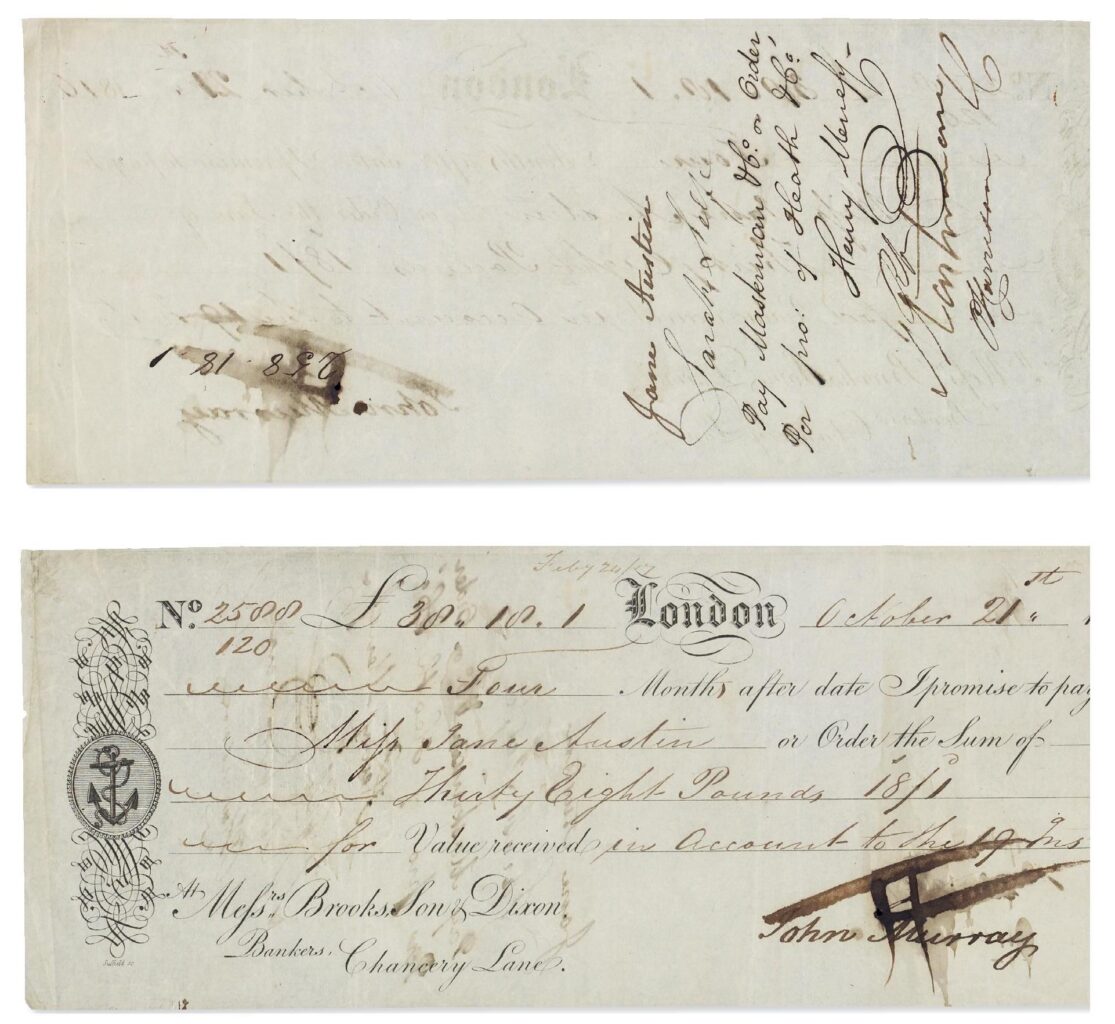 Jane Austin
Sarah
Pay Masterman & Co. or Order
Per pro: of Heath & Co.
Henry
Harrison
£38 . 18 . 1
Feby 24/17
No. 2588 £ 38 . 18 . 1 London October 21st
120
Four Months after date I promise to pay
Miss Jane Austin or Order the Sum of
Thirty Eight Pounds 18/1
for Value received in account to the 19 Ins
At Messrs. Brooks, Son & Dixon,
Bankers, Chancery Lane.
John Murray